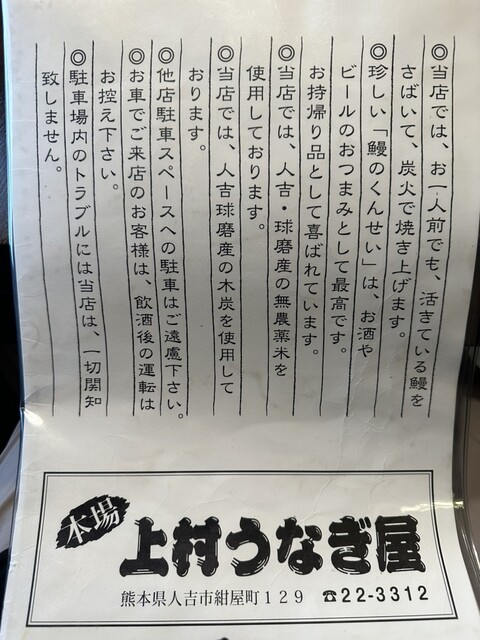 ◎当店では、お一人前でも、活きている鰻を
さばいて、炭火で焼き上げます。
◎珍しい「鰻のくんせい」は、お酒や
ビールのおつまみとして最高です。
お持帰り品として喜ばれています。
◎当店では、人吉・球磨産の無農薬米を
使用しております。
◎当店では、人吉球磨産の木炭を使用して
おります。
◎他店駐車スペースへの駐車はご遠慮下さい。
◎お車でご来店のお客様は、飲酒後の運転は
お控え下さい。
◎駐車場内のトラブルには当店は、一切関知
致しません。
本場
上村うなぎ屋
熊本県人吉市紺屋町129 ☎22-3312